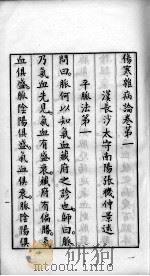 傷寒雜病論卷第一
漢長沙太守南陽張機仲景述
平脈法第一
問曰脈何以知氣血藏府之診也師曰脈
乃氣血先見氣血有盛衰藏府有偏勝氣
血俱盛脈陰陽俱盛氣血俱衰脈陰陽俱